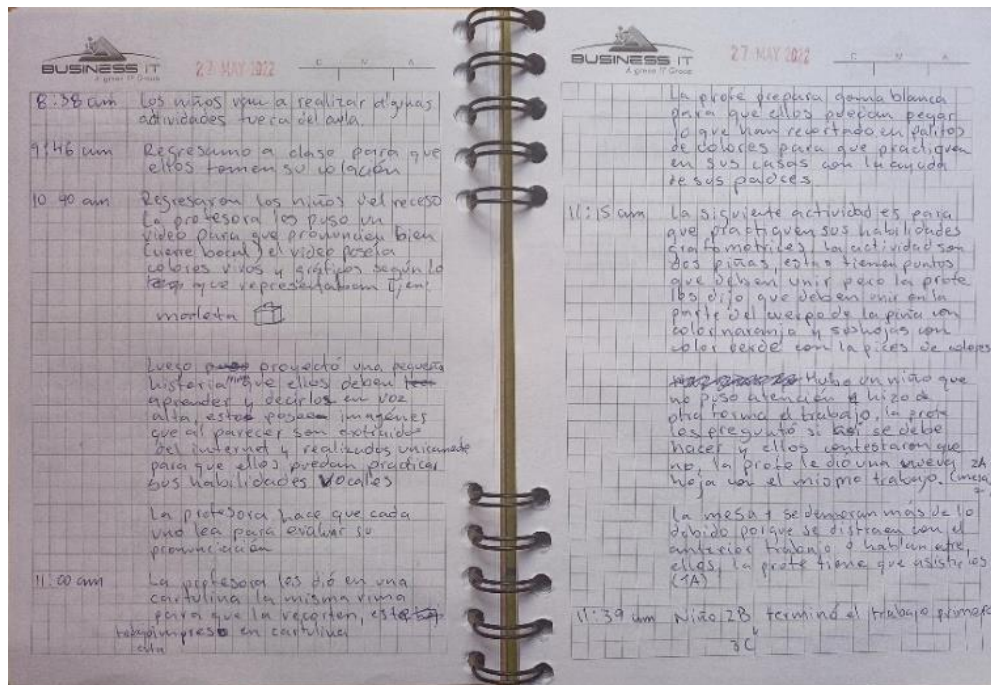 BUSINESS IT
A green IT Group
27 MAY 2022
C N A
8:38 am Los niños van a realizar algunas
actividades fuera del aula.
9:46 am Regresamo a clase para que
ellos tomen su colación
10 40 am Regresaron los niños del receso
La profesora les puso un
video para que pronuncien bien
(verre bocal) el video poseía
colores vivos y gráficos según lo
que representaban Ejem:
maleta
Luego proyectó una pequeña
historia que ellos deben
aprender y decirlos en voz
alta, estos poseen imagénes
que al parecer son extraidos
del internet y realizados unicamede
para que ellos puedan practicar
sus habilidades vocales
La profesora hace que cada
uno lea para evaluar su
pronunciación
11:00 am La profesora les dió en una
cartulina la misma rima
para que la recorten, esta
impreso en cartulina
BUSINESS IT
A green IT Group
27 MAY 2022
C N A
La profe prepara goma blanca
para que ellos puedan pegar
lo que han recortado en palitos
de colores para que practiquen
en sus casas con la ayuda
de sus padres
11:15 am La siguiente actividad es para
que practiquen sus habilidades
grafomotrices, la actividad son
dos piñas, estas tienen puntos
que deben unir pero la profe
les dijo que deben unir en la
parte del cuerpo de la piña con
color naranja y sus hojas con
color verde con lapices de colores
Hubo un niño que
no puso atención e hizo de
otra forma el trabajo, la profe
les preguntó si asi se debe
hacer y ellos contestaron que
no, la profe le dio una nueva 2A
hoja con el mismo trabajo. (mesa
La mesa 1 se demoran más de lo
debido porque se distraen con el
anterior trabajo o hablan entre
ellos, la profe tiene que asistirlos
(1A)
11:39 am Niño 2B terminó el trabajo primero
3C